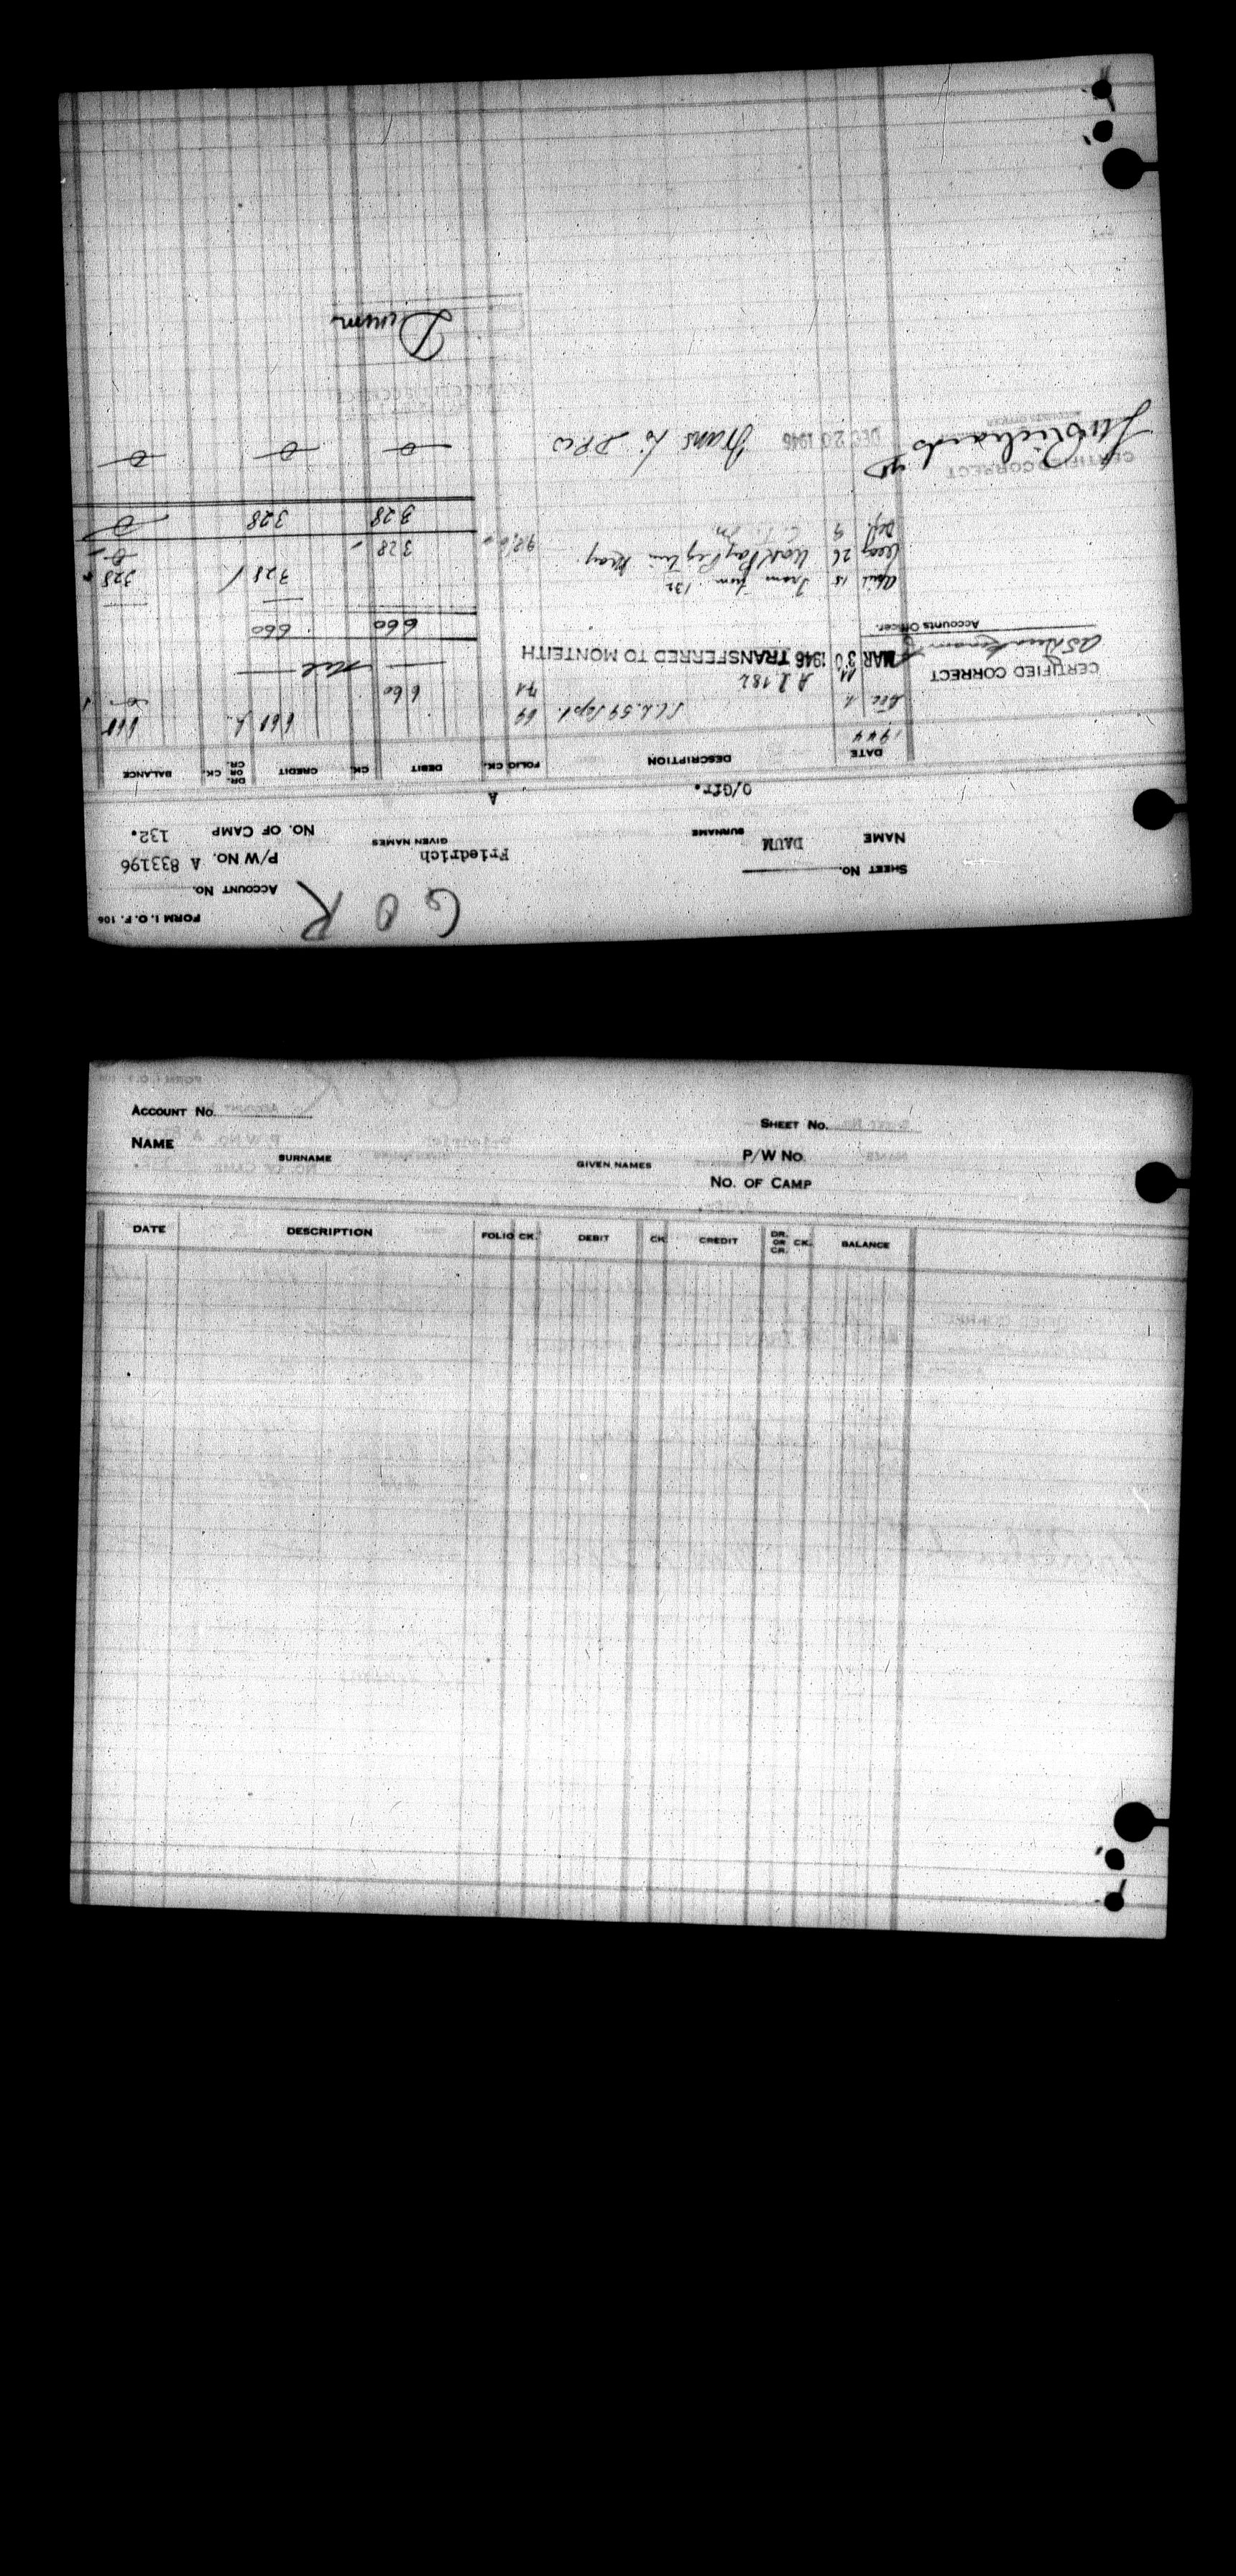 FORM I. O. F. 106
G O R
ACCOUNT No.
SHEET No.
Friedrich
P/W NO. A 833196
NAME DAUM
SURNAME
GIVEN NAMES
NO. OF CAMP 132.
O/Gfr.
A
DATE DESCRIPTION FOLIO CK. DEBIT CK. CREDIT DR. OR CR. CK. BALANCE
1944
Dec 69 660
11 A 2182 71 660
CERTIFIED CORRECT
MAR 30 1946 TRANSFERRED TO MONTEITH nil
Accounts Officer.
660 660
April 15 Trans from 132 328 328
Aug 26 Work Pay May 328
Sept. 9
328 328
CERTIFIED CORRECT
DEC 20 1946 Trans to DPW 0 0 0
Daum
ACCOUNT No.
SHEET No.
NAME
SURNAME
GIVEN NAMES
P/W No.
No. OF CAMP
DATE DESCRIPTION FOLIO CK. DEBIT CK. CREDIT DR. OR CR. CK. BALANCE